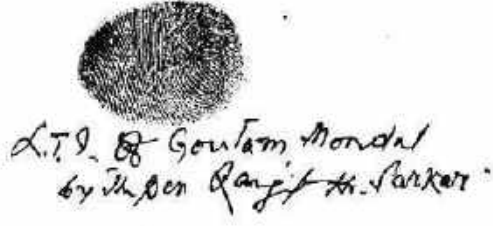 L.T.I. of Goutam Mondal
by the Pen Ranjit Kr. Sarkar